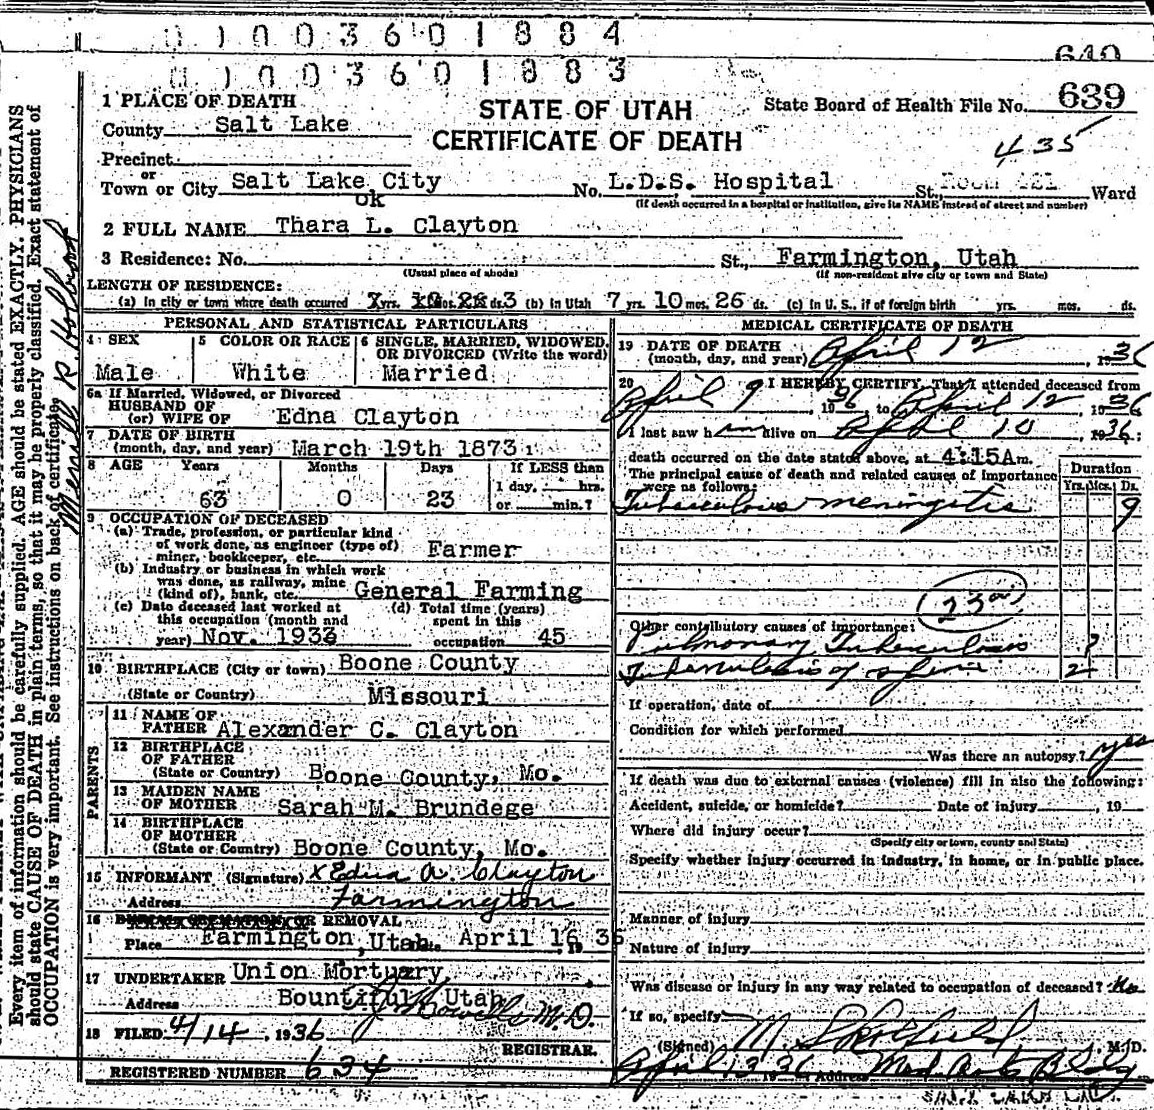 0 1 0 0 3 6 0 1 8 8 4
640
0 1 0 0 3 6 0 1 8 8 3
1 PLACE OF DEATH
County Salt Lake
Precinct
or
Town or City Salt Lake City
STATE OF UTAH
CERTIFICATE OF DEATH
State Board of Health File No. 639
435
No. L.D.S. Hospital St., Room Ward
(If death occurred in a hospital or institution, give its NAME instead of street and number)
ok
2 FULL NAME Thara L. Clayton
3 Residence: No. St., Farmington, Utah
(Usual place of abode) (If non-resident give city or town and State)
LENGTH OF RESIDENCE:
(a) In city or town where death occurred yrs. mos. ds. 3 (b) In Utah 7 yrs. 10 mos. 26 ds. (c) in U. S., if of foreign birth yrs. mos. ds.
PERSONAL AND STATISTICAL PARTICULARS
4 SEX
Male
5 COLOR OR RACE
White
6 SINGLE, MARRIED, WIDOWED, OR DIVORCED (Write the word)
Married
6a If Married, Widowed, or Divorced
HUSBAND OF
(or) WIFE OF Edna Clayton
7 DATE OF BIRTH
(month, day, and year) March 19th 1873
8 AGE Years Months Days If LESS than
1 day, hrs.
63 0 23 or min.?
9 OCCUPATION OF DECEASED
(a) Trade, profession, or particular kind
of work done, as engineer (type of)
miner, bookkeeper, etc. Farmer
(b) Industry or business in which work
was done, as railway, mine
(kind of), bank, etc. General Farming
(c) Date deceased last worked at
this occupation (month and
year) Nov. 1933
(d) Total time (years)
spent in this
occupation 45
10 BIRTHPLACE (City or town) Boone County
(State or Country) Missouri
PARENTS
11 NAME OF
FATHER Alexander C. Clayton
12 BIRTHPLACE
OF FATHER
(State or Country) Boone County, Mo.
13 MAIDEN NAME
OF MOTHER Sarah M. Brundege
14 BIRTHPLACE
OF MOTHER
(State or Country) Boone County, Mo.
15 INFORMANT (Signature) x Edna A. Clayton
Address Farmington
16 OR REMOVAL
Place Farmington, Utah April 16 36
17 UNDERTAKER Union Mortuary,
Address Bountiful Utah
18 FILED 4/14, 1936
M.D.
REGISTRAR.
REGISTERED NUMBER 634
MEDICAL CERTIFICATE OF DEATH
19 DATE OF DEATH
(month, day, and year) April 12, 1936
20 I HEREBY CERTIFY, That I attended deceased from
April 9, 1936 to April 12, 1936
I last saw him alive on April 10, 1936:
death occurred on the date stated above, at 4:15A m.
The principal cause of death and related causes of importance
were as follows:
Duration
Yrs. Mos. Ds.
Tuberculous meningitis 9
23
Other contributory causes of importance:
Pulmonary Tuberculosis ?
Tuberculosis of spine 2+
If operation, date of
Condition for which performed
Was there an autopsy? yes
If death was due to external causes (violence) fill in also the following:
Accident, suicide, or homicide? Date of injury , 19
Where did injury occur?
(Specify city or town, county and State)
Specify whether injury occurred in industry, in home, or in public place.
Manner of injury
Nature of injury
Was disease or injury in any way related to occupation of deceased? No
If so, specify
(Signed) M. M.D.
April 13 36 Address Med Arts Bldg
Every item of information should be carefully supplied. AGE should be stated EXACTLY. PHYSICIANS
should state CAUSE OF DEATH in plain terms, so that it may be properly classified. Exact statement of
OCCUPATION is very important. See instructions on back of certificate.